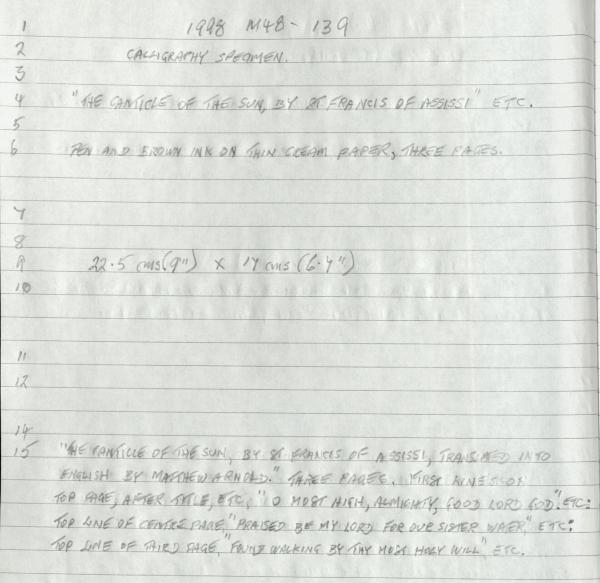 1 1998 M48 - 139
2 CALLIGRAPHY SPECIMEN.
3
4 "THE CANTICLE OF THE SUN, BY ST FRANCIS OF ASSISSI" ETC.
5
6 PEN AND BROWN INK ON THIN CREAM PAPER, THREE PAGES.
7
8
9 22.5 cms (9") x 17 cms (6.7")
10
11
12
14
15 "THE CANTICLE OF THE SUN, BY ST FRANCIS OF ASSISSI, TRANSLATED INTO
ENGLISH BY MATTHEW ARNOLD." THREE PAGES. FIRST LINES ON
TOP PAGE, AFTER TITLE, ETC, "O MOST HIGH, ALMIGHTY, GOOD LORD GOD", ETC:
TOP LINE OF CENTRE PAGE, "PRAISED BE MY LORD FOR OUR SISTER WATER," ETC:
TOP LINE OF THIRD PAGE, "FOUND WALKING BY THY MOST HOLY WILL" ETC.